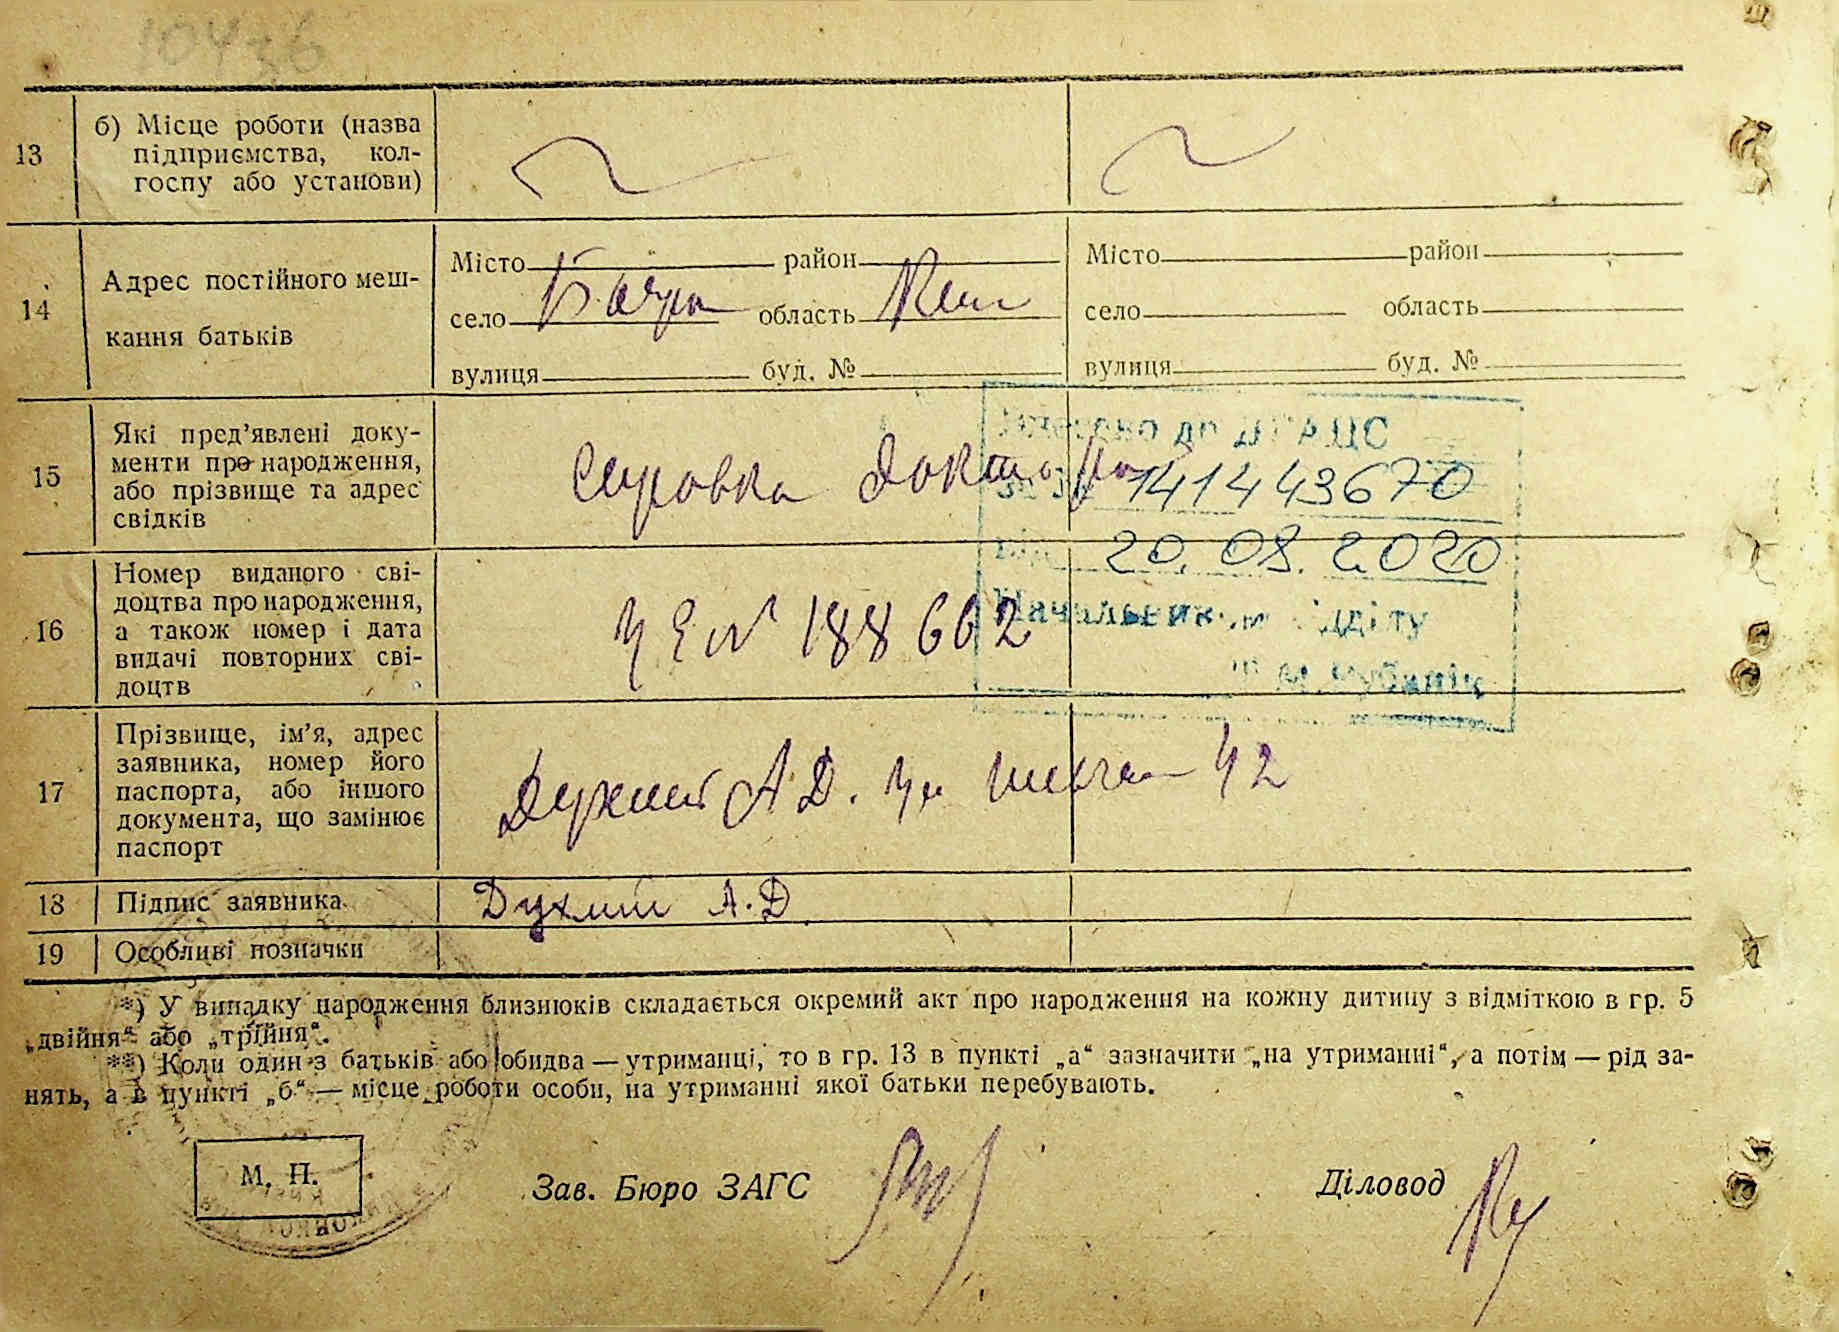 10476
13
б) Місце роботи (назва
підприємства, кол-
госпу або установи)
14
Адрес постійного меш-
кання батьків
Місто район
село область
вулиця буд. №
Місто район
село область
вулиця буд. №
15
Які пред’явлені доку-
менти про народження,
або прізвище та адрес
свідків
Справка доктора
до ДРАЦС
141443670
20.08.2020
Начальник відділу
16
Номер виданого сві-
доцтва про народження,
а також номер і дата
видачі повторних сві-
доцтв
№ 188662
17
Прізвище, ім’я, адрес
заявника, номер його
паспорта, або іншого
документа, що замінює
паспорт
Духний А.Д. 42
18
Підпис заявника
Духний А.Д
19
Особливі позначки
*) У випадку народження близнюків складається окремий акт про народження на кожну дитину з відміткою в гр. 5
„двійня“ або „трійня“.
**) Коли один з батьків або обидва — утриманці, то в гр. 13 в пункті „а“ зазначити „на утриманні“, а потім — рід за-
нять, а в пункті „б“ — місце роботи особи, на утриманні якої батьки перебувають.
М. П.
Зав. Бюро ЗАГС
Діловод